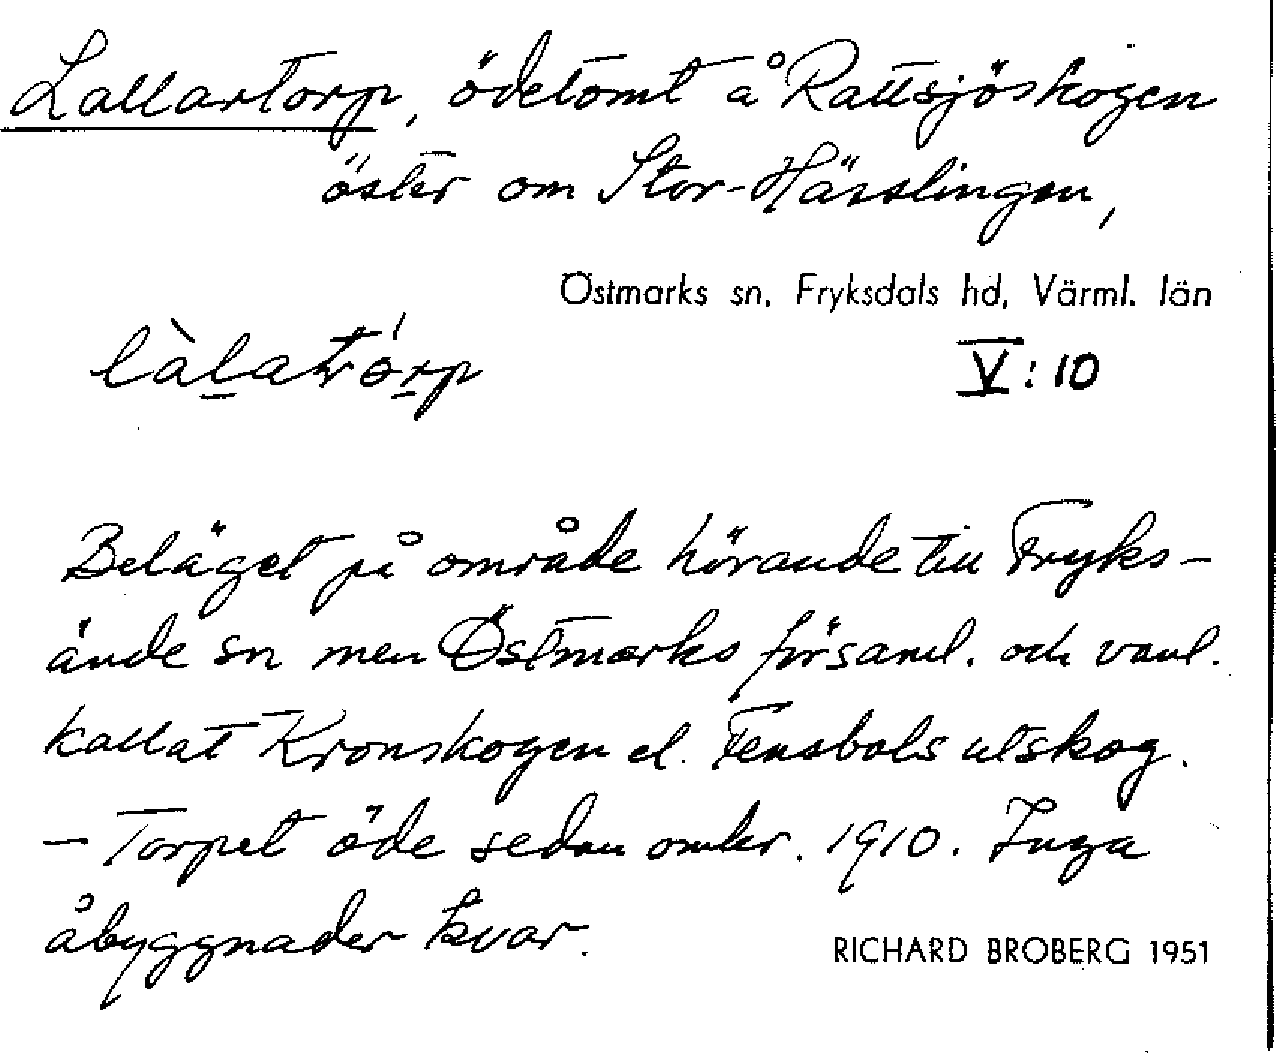 Lallartorp, ödetomt å Rattsjöskogen
öster om Stor-Hässlingen,
Östmarks sn, Fryksdals hd, Värml. län
làlatórp
V:10
Beläget på område hörande till Fryks-
ände sn men Östmarks församl. och vanl.
kallat Kronskogen el. Fensbols utskog.
- Torpet öde sedan omkr. 1910. Inga
åbyggnader kvar.
RICHARD BROBERG 1951